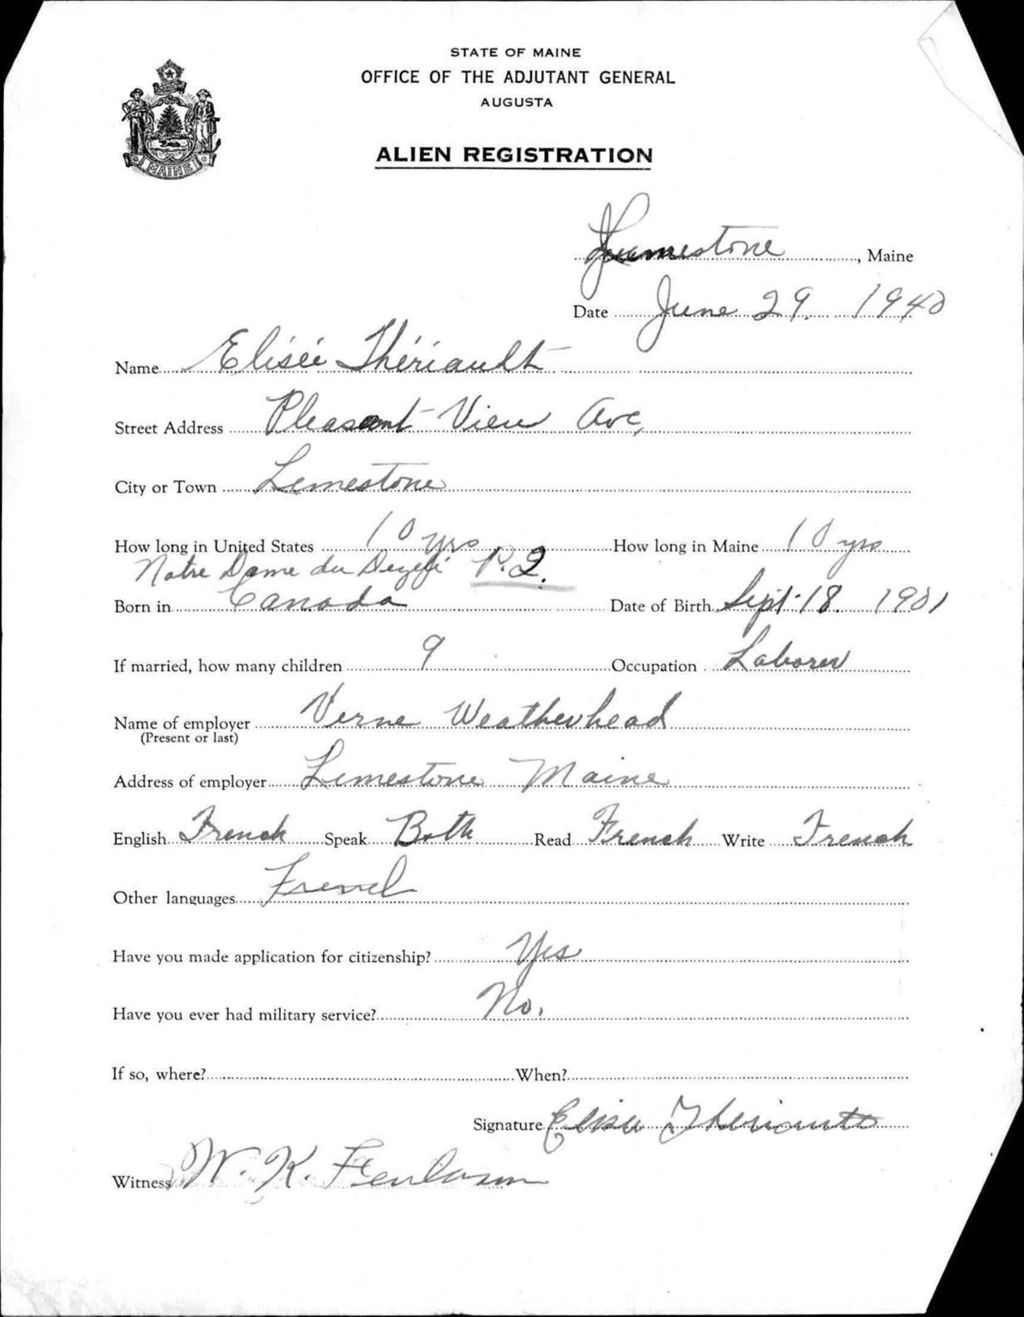 STATE OF MAINE
OFFICE OF THE ADJUTANT GENERAL
AUGUSTA
ALIEN REGISTRATION
MAINE
Limestone, Maine
Date June 29. 1940
Name Elisée Thériault
Street Address Pleasant View Ave,
City or Town Limestone
How long in United States 10 yrs How long in Maine 10 yrs
Notre Dame du P.Q.
Born in Canada Date of Birth Sept. 18. 1901
If married, how many children 9 Occupation Laborer
Name of employer Verne Weatherhead
(Present or last)
Address of employer Limestone Maine
English French Speak Both Read French Write French
Other languages French
Have you made application for citizenship? Yes
Have you ever had military service? No.
If so, where? When?
Signature Elisee Theriault
Witness W. K.